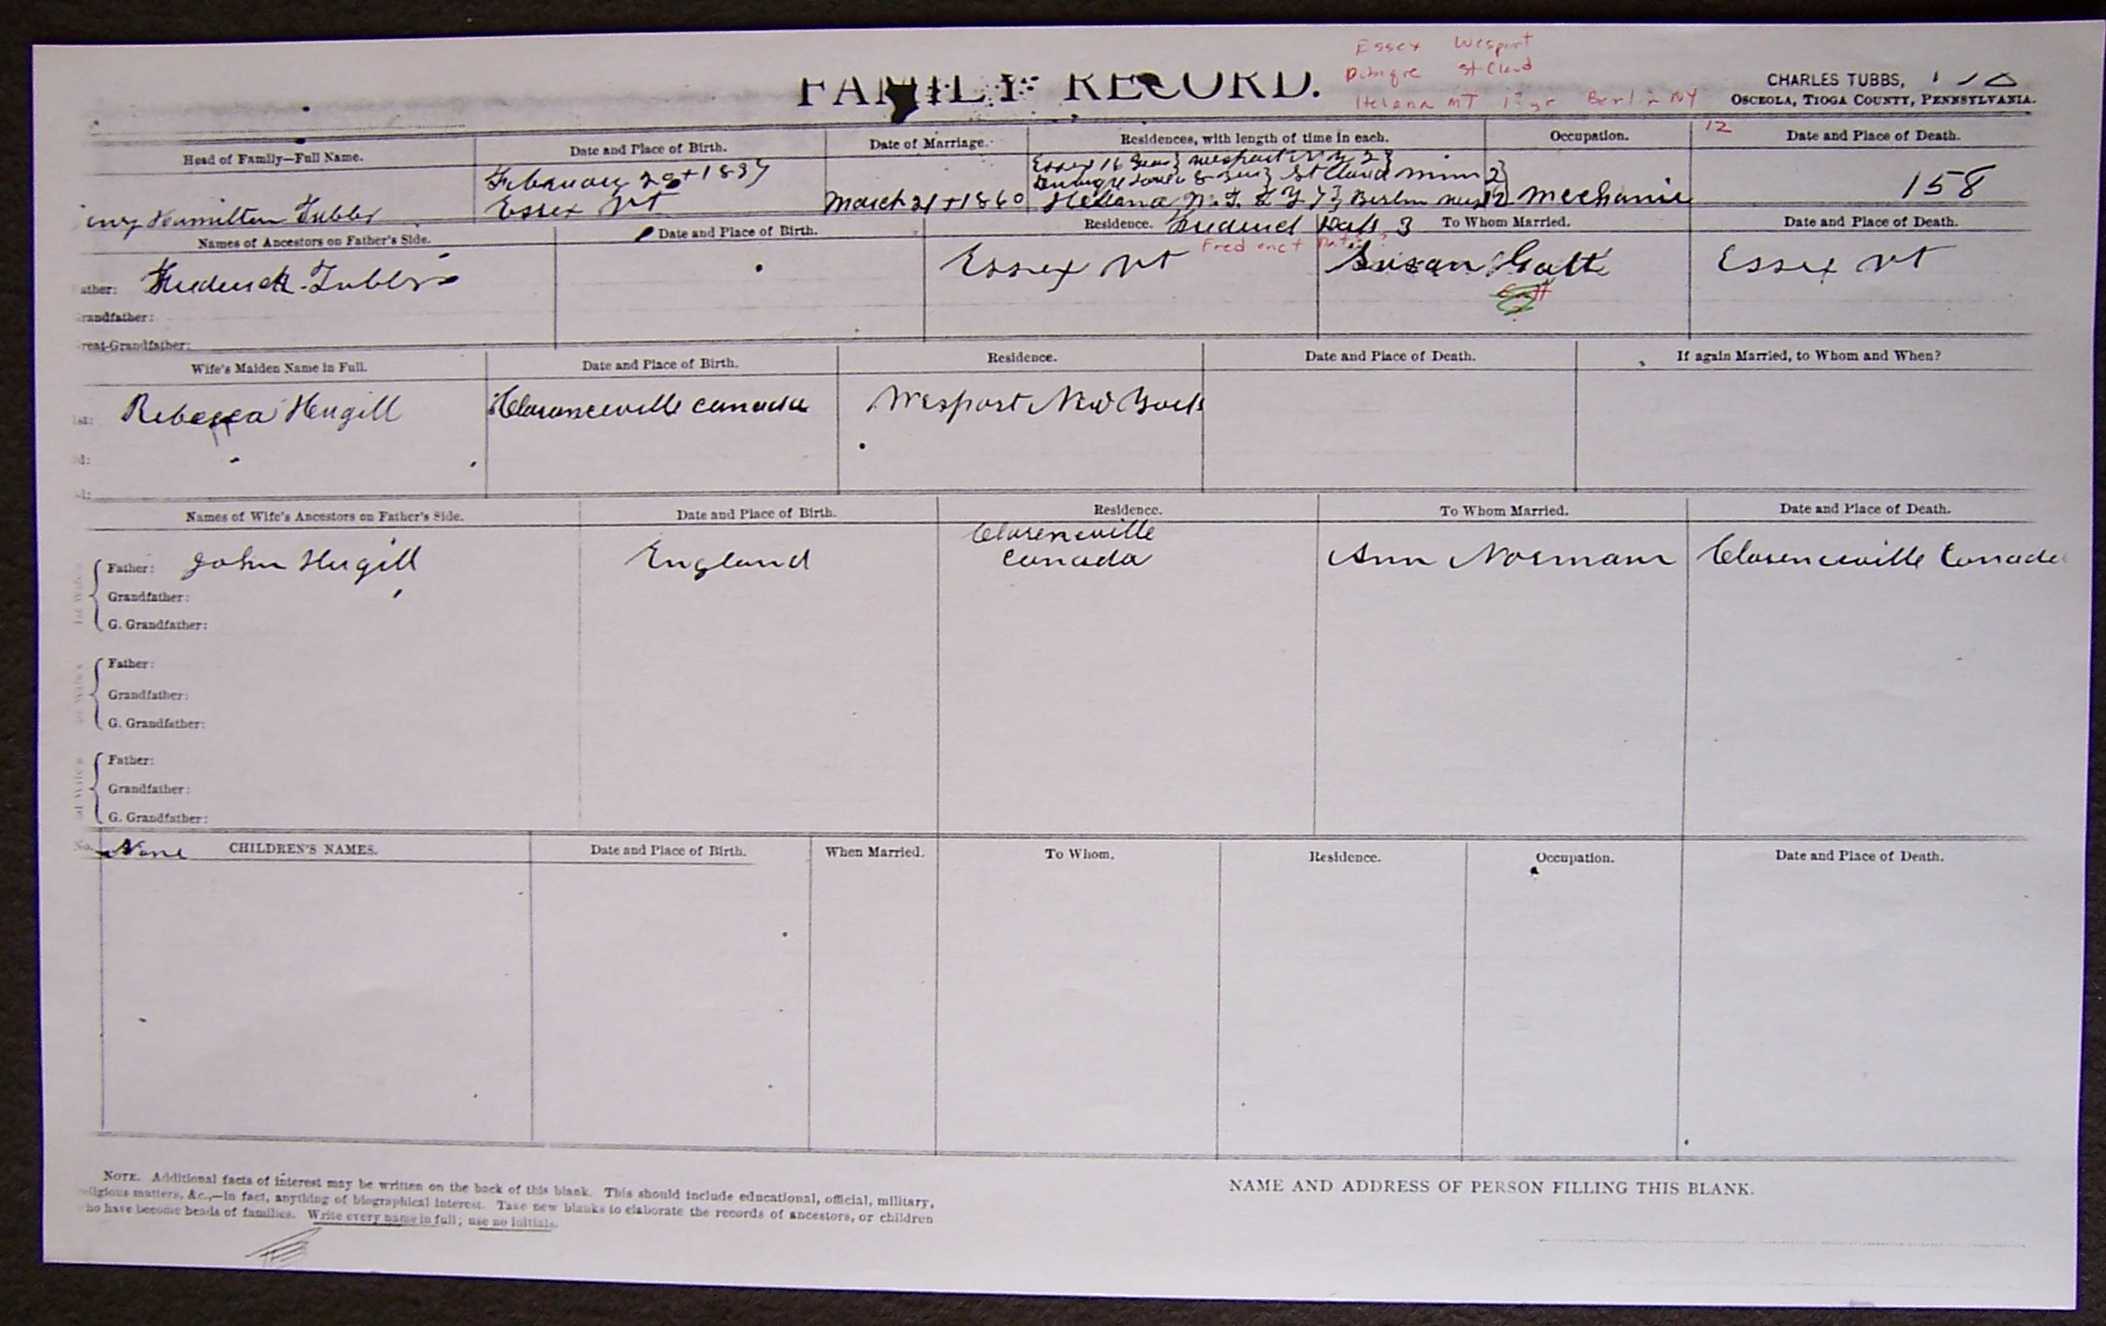 Essex Wesport
FAMILY RECORD.
Dubuqre St Cloud
CHARLES TUBBS,
Helena MT Berlin NY
OSCEOLA, TIOGA COUNTY, PENNSYLVANIA.
12
Head of Family—Full Name.
Date and Place of Birth.
Date of Marriage.
Residences, with length of time in each.
Occupation.
Date and Place of Death.
February
Essex 16 Years
St Cloud Minn 2
enry Hamilton Tubbs
Essex Vt
March 21st 1860
Helena
Berlin
12
Mechanic
158
Names of Ancestors on Father's Side.
Date and Place of Birth.
Residence.
Frederick
3
To Whom Married.
Date and Place of Death.
ather: Frederick Tubbs
Essex Vt
Susan Gatt
Essex Vt
randfather:
reat-Grandfather:
Wife's Maiden Name in Full.
Date and Place of Birth.
Residence.
Date and Place of Death.
If again Married, to Whom and When?
1st: Rebecca Hugill
Clarenceville Canada
Wesport New York
d:
d:
Names of Wife's Ancestors on Father's Side.
Date and Place of Birth.
Residence.
To Whom Married.
Date and Place of Death.
Father: John Hugill
England
Clarenceville
Canada
Ann Norman
Clarenceville Canada
Grandfather:
G. Grandfather:
Father:
Grandfather:
G. Grandfather:
Father:
Grandfather:
G. Grandfather:
No. None
CHILDREN'S NAMES.
Date and Place of Birth.
When Married.
To Whom.
Residence.
Occupation.
Date and Place of Death.
NOTE. Additional facts of interest may be written on the back of this blank. This should include educational, official, military,
eligious matters, &c.,—in fact, anything of biographical interest. Take new blanks to elaborate the records of ancestors, or children
ho have become heads of families. Write every name in full; use no initials.
NAME AND ADDRESS OF PERSON FILLING THIS BLANK.